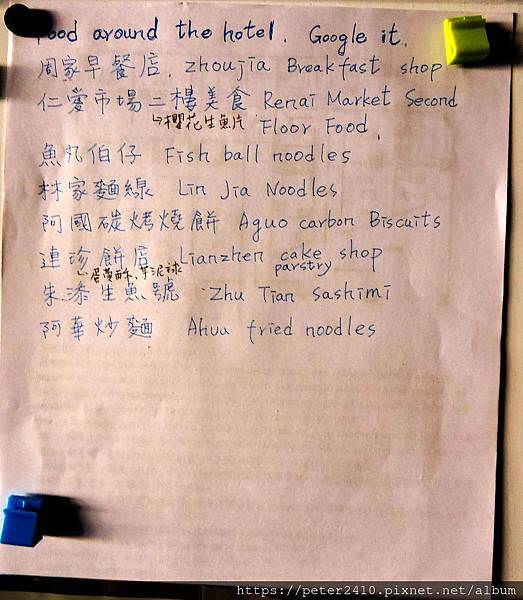 Food around the hotel. Google it.
周家早餐店. zhoujia Breakfast shop
仁愛市場二樓美食 Renai Market Second
↳櫻花生魚片 Floor Food,
魚丸伯仔 Fish ball noodles
林家麵線 Lin Jia Noodles
阿國碳烤燒餅 Aguo carbon Biscuits
連珍餅店 Lianzhen cake shop
蛋黃酥、芋泥球 parstry
朱添生魚號 Zhu Tian sashimi
阿華炒麵 Ahua fried noodles
https://peter2410.pixnet.net/album